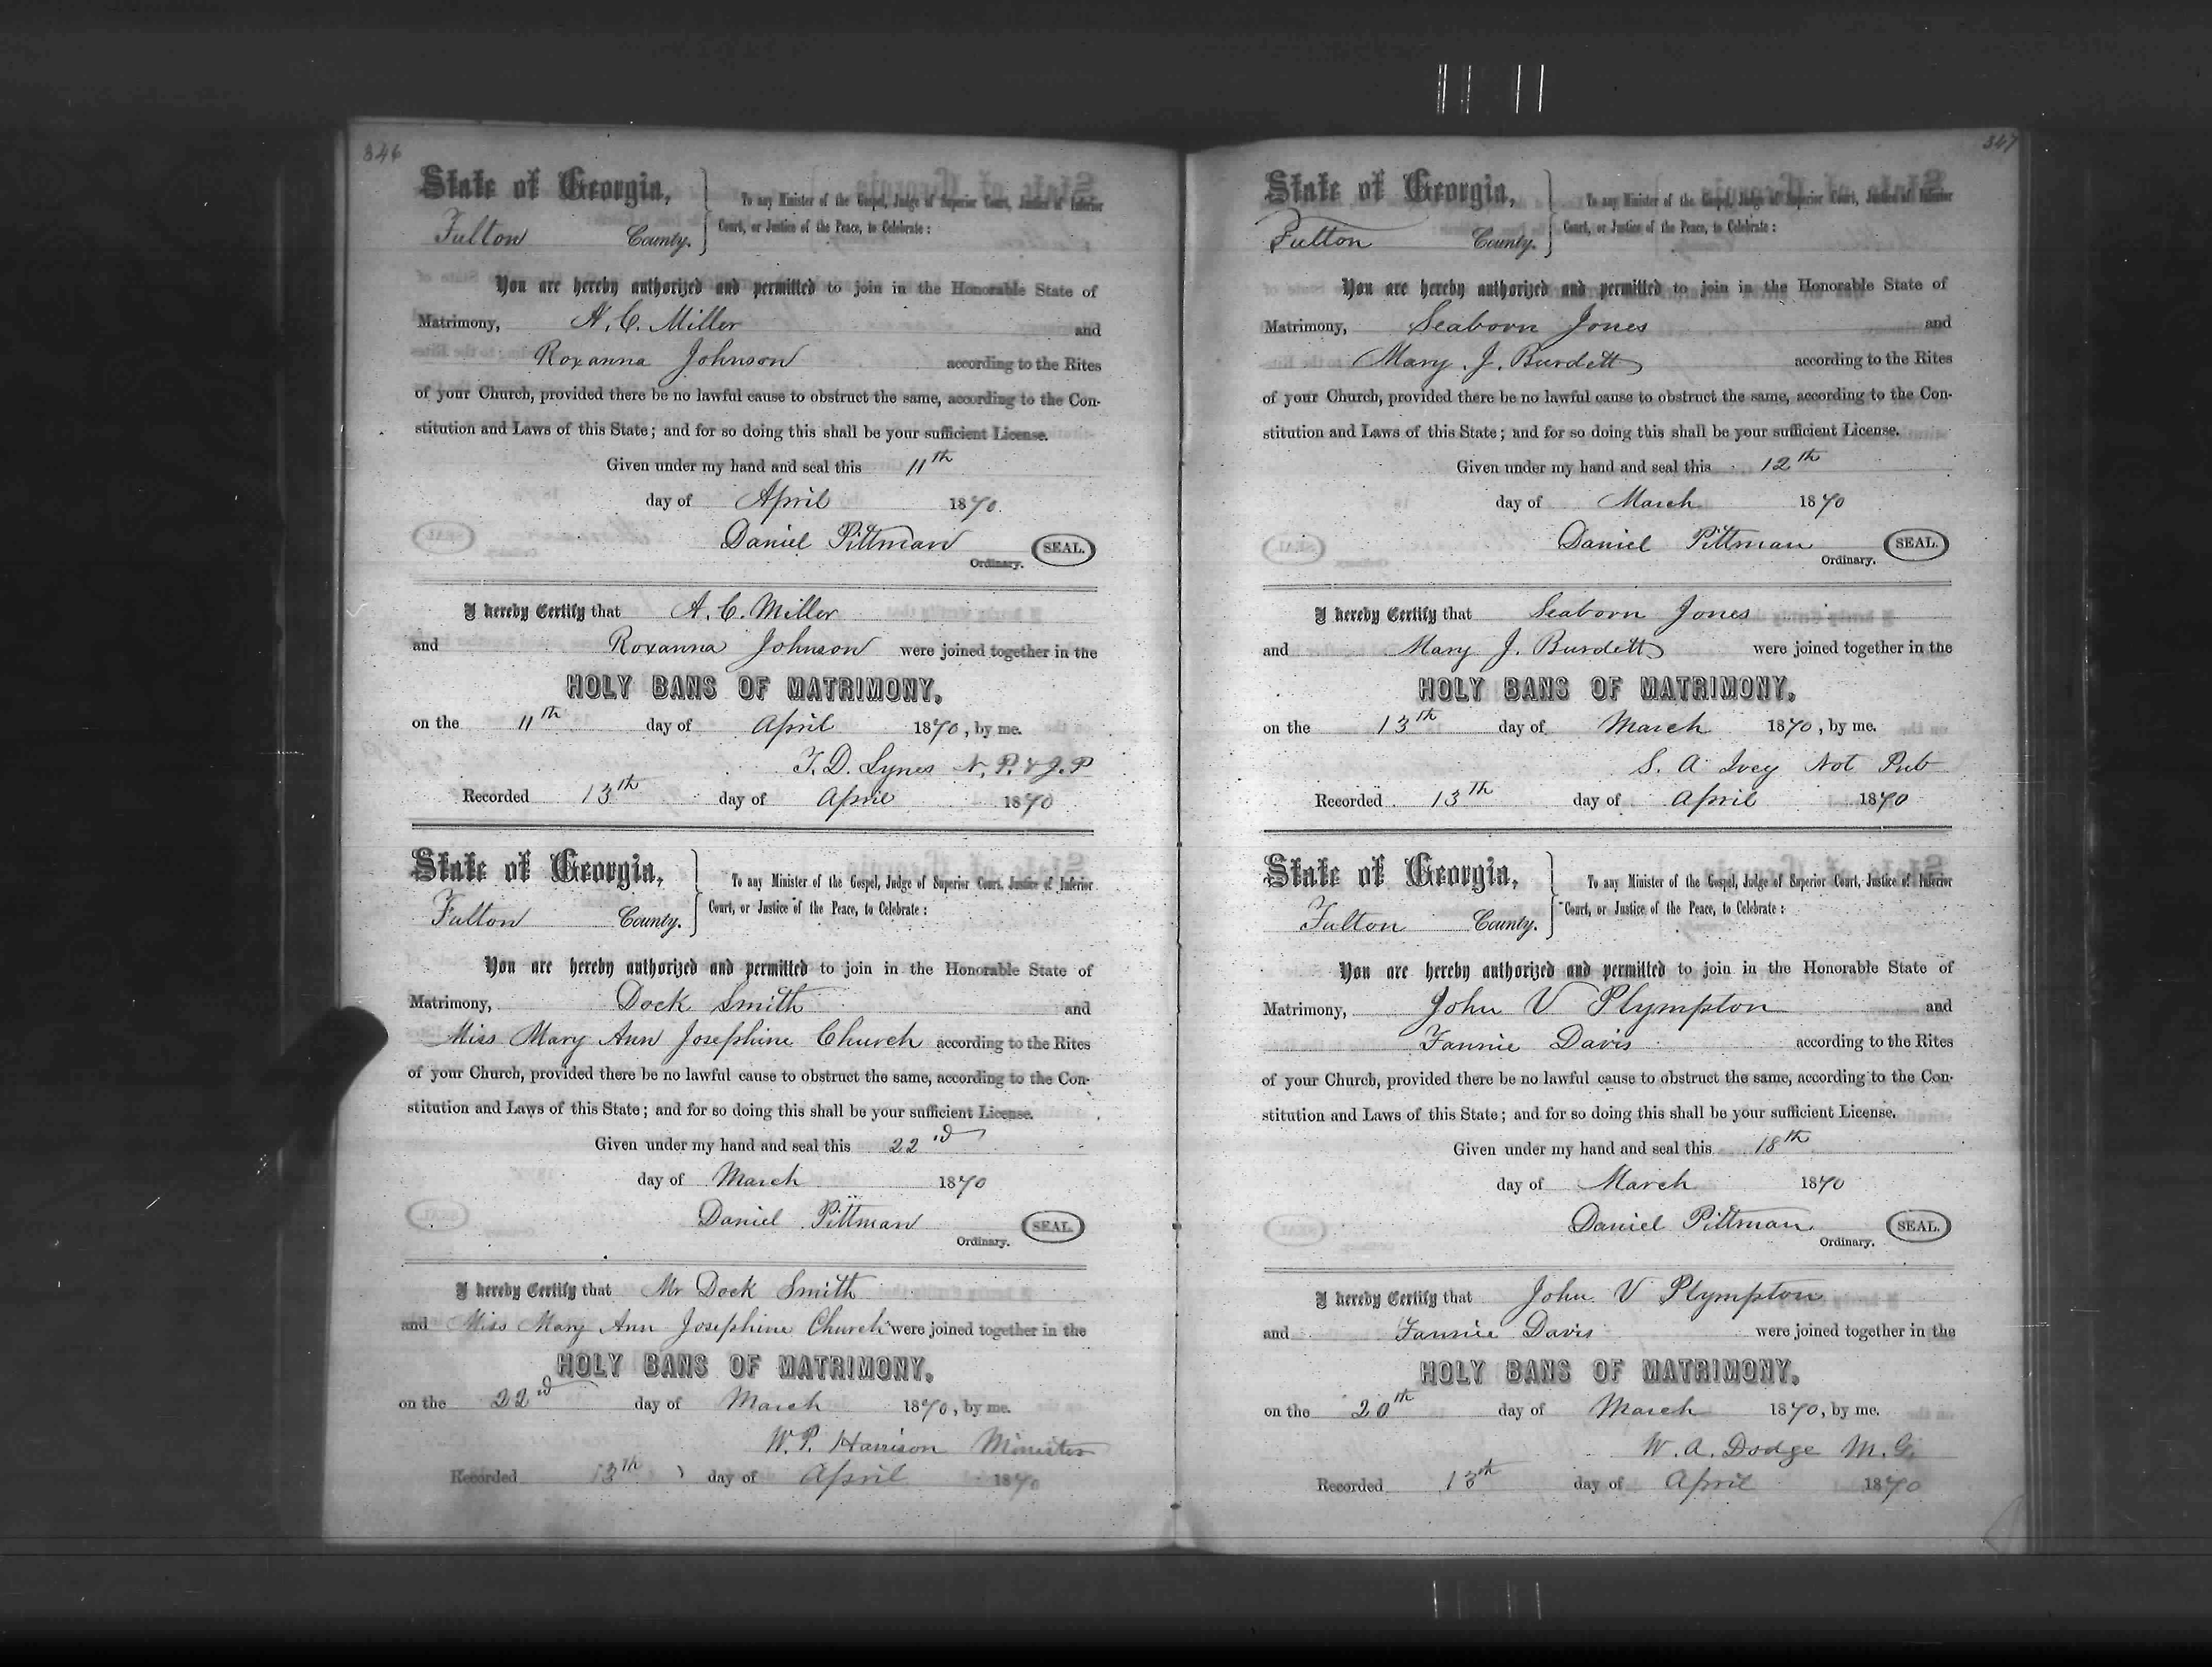 346
State of Georgia,
Fulton County.
To any Minister of the Gospel, Judge of Superior Court, Justice of Inferior
Court, or Justice of the Peace, to Celebrate :
You are hereby authorized and permitted to join in the Honorable State of
Matrimony, A. C. Miller and
Roxanna Johnson according to the Rites
of your Church, provided there be no lawful cause to obstruct the same, according to the Con-
stitution and Laws of this State; and for so doing this shall be your sufficient License.
Given under my hand and seal this 11th
day of April 1870.
Daniel Pittman SEAL.
Ordinary.
I hereby Certify that A. C. Miller
and Roxanna Johnson were joined together in the
HOLY BANS OF MATRIMONY,
on the 11th day of April 1870, by me.
T. D. Lynes N. P. & J. P
Recorded 13th day of April 1870
State of Georgia,
Fulton County.
To any Minister of the Gospel, Judge of Superior Court, Justice of Inferior
Court, or Justice of the Peace, to Celebrate :
You are hereby authorized and permitted to join in the Honorable State of
Matrimony, Dock Smith and
Miss Mary Ann Josephine Church according to the Rites
of your Church, provided there be no lawful cause to obstruct the same, according to the Con-
stitution and Laws of this State; and for so doing this shall be your sufficient License.
Given under my hand and seal this 22nd
day of March 1870
Daniel Pittman SEAL.
Ordinary.
I hereby Certify that Mr Dock Smith
and Miss Mary Ann Josephine Church were joined together in the
HOLY BANS OF MATRIMONY,
on the 22nd day of March 1870, by me.
W. P. Harrison Minister
Recorded 13th day of April 1870
347
State of Georgia,
Fulton County.
To any Minister of the Gospel, Judge of Superior Court, Justice of Inferior
Court, or Justice of the Peace, to Celebrate :
You are hereby authorized and permitted to join in the Honorable State of
Matrimony, Seaborn Jones and
Mary J. Burdett according to the Rites
of your Church, provided there be no lawful cause to obstruct the same, according to the Con-
stitution and Laws of this State; and for so doing this shall be your sufficient License.
Given under my hand and seal this 12th
day of March 1870
Daniel Pittman SEAL.
Ordinary.
I hereby Certify that Seaborn Jones
and Mary J. Burdett were joined together in the
HOLY BANS OF MATRIMONY,
on the 13th day of March 1870, by me.
S. A Ivey Not Pub
Recorded 13th day of April 1870
State of Georgia,
Fulton County.
To any Minister of the Gospel, Judge of Superior Court, Justice of Inferior
Court, or Justice of the Peace, to Celebrate :
You are hereby authorized and permitted to join in the Honorable State of
Matrimony, John V Plympton and
Fannie Davis according to the Rites
of your Church, provided there be no lawful cause to obstruct the same, according to the Con-
stitution and Laws of this State; and for so doing this shall be your sufficient License.
Given under my hand and seal this 18th
day of March 1870
Daniel Pittman SEAL.
Ordinary.
I hereby Certify that John V Plympton
and Fannie Davis were joined together in the
HOLY BANS OF MATRIMONY,
on the 20th day of March 1870, by me.
W. A. Dodge M. G.
Recorded 13th day of April 1870